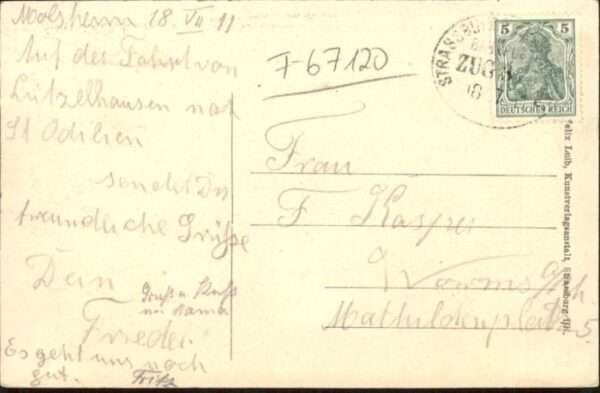 Molsheim 18. VII 11
Auf der Fahrt von
Lützelhausen nach
St Odilien
sendet Dir
freundliche Grüße
Dein
Frieder
Gruß u. Kuß
Es geht uns noch
gut.
Fritz
F-67120
STRASSBU
ZUG
18 7
5 5
DEUTSCHES REICH
Frau
F Kasper
Worms
Mathildenplatz 5.
Felix Luib, Kunstverlagsanstalt, Strassburg i/E.